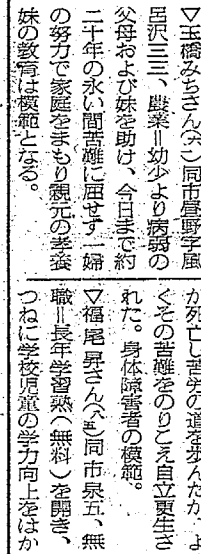 ▽玉橋みちさん(六一)同市昼野字風
呂沢三三、農業＝幼少より病弱の
父母および妹を助け、今日まで約
二十年の永い間苦難に屈せず一婦
の努力で家庭をまもり親元の孝養
妹の教育は模範となる。
が死亡し苦労の道を歩んだが、よ
くその苦難をのりこえ自立更生さ
れた。身体障害者の模範。
▽福尾昇さん(八五)同市泉五、無
職＝長年学習熟(無料)を開き、
つねに学校児童の学力向上をはか